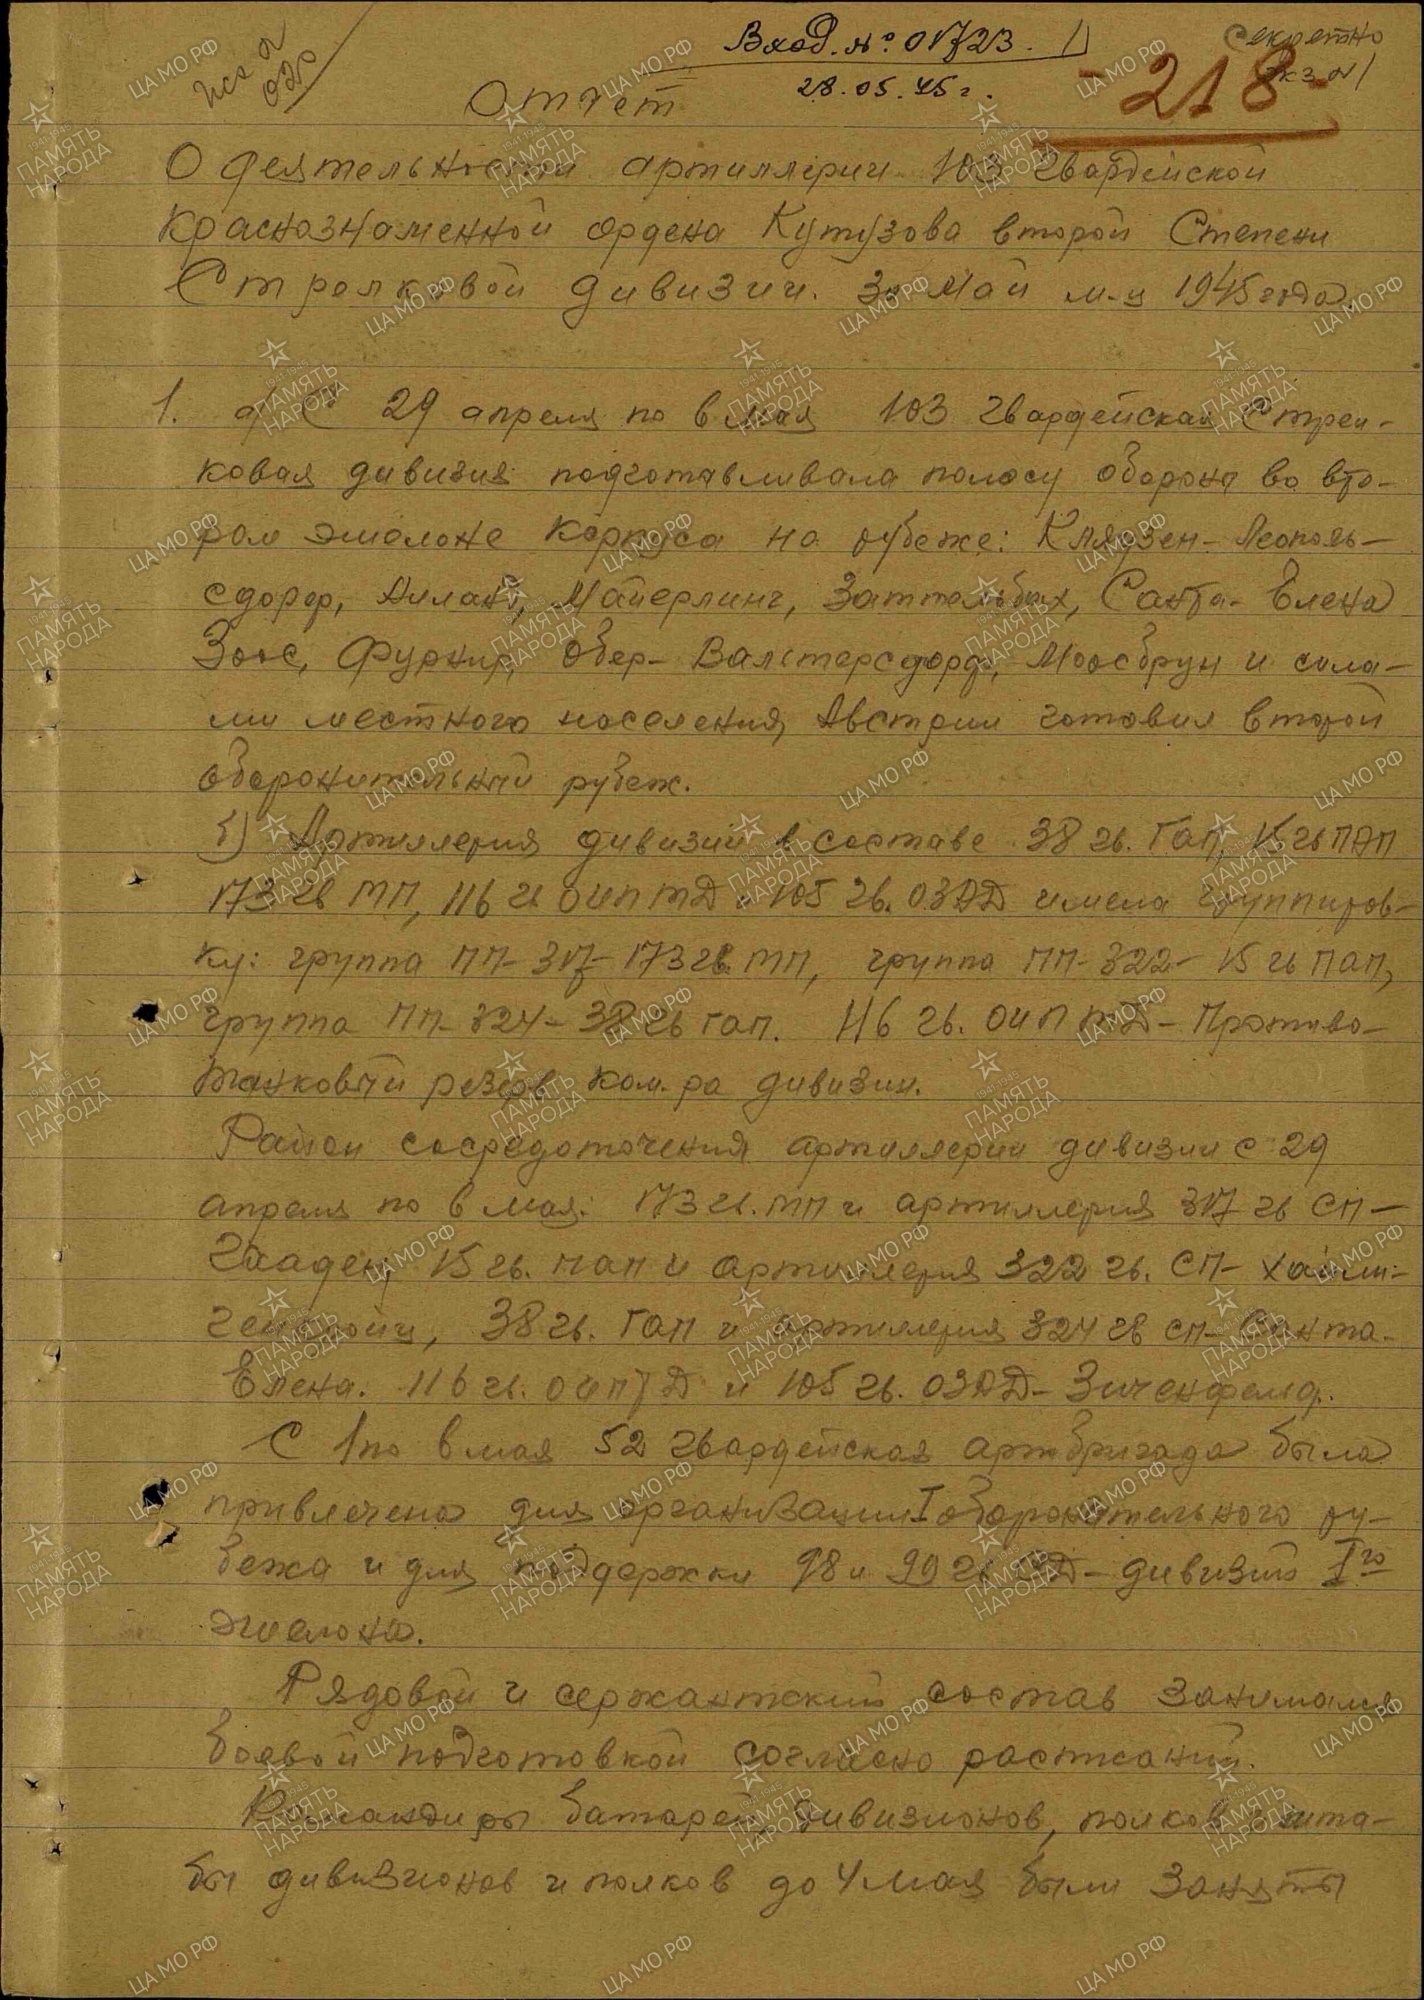 Вход. № 01723.
28.05.45г.
Секретно
Экз. №1
-218-
Отчет
О деятельности артиллерии 103 гвардейской
Краснознаменной ордена Кутузова второй Степени
Стрелковой дивизии. За май м-ц 1945 года.
1. а) С 29 апреля по 6 мая 103 гвардейская Стрел-
ковая дивизия подготавливала полосу оборона во вто-
ром эшелоне корпуса на рубеже: Кляузен-Леополь-
сдорф, Алланд, Майерлинг, Заттельбах, Санта-Елена
Зоос, Фуркир, Обер-Вальтерсдорф, Моосбрун и сила-
ми местного населения, Австрии готовил второй
оборонительный рубеж.
б) Артиллерия дивизии в составе 38 гв. ГАП, 15 гв ПАП
173 гв МП, 116 гв ОИПТД и 105 гв. ОЗАД имела группиров-
ку: группа ПП-317-173 гв. МП, группа ПП-322-15 гв ПАП,
группа ПП-324-38 гв ГАП. 116 гв. ОИПТД-Противо-
танковый резерв ком.ра дивизии.
Район сосредоточения артиллерии дивизии с 29
апреля по 6 мая: 173 гв. МП и артиллерия 317 гв СП-
Гааден, 15 гв. ПАП и артиллерия 322 гв. СП-Хайли-
генкройц, 38 гв. ГАП и артиллерия 324 гв СП-Санта-
Елена. 116 гв. ОИПТД и 105 гв. ОЗАД-Зиченфельд.
С 1 по 6 мая 52 гвардейская артбригада была
привлечена для организации I оборонительного ру-
бежа и для поддержки 98 и 99 гв СД-дивизий Iго
эшелона.
Рядовой и сержантский состав занимался
боевой подготовкой согласно расписаний.
Командиры батарей, дивизионов, полков и шта-
бы дивизионов и полков до 4 мая были заняты